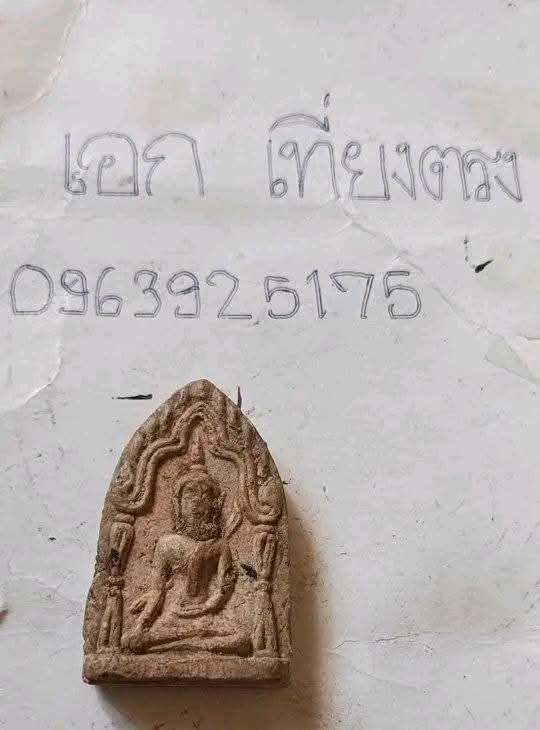 เอก เที่ยงตรง
0963925175